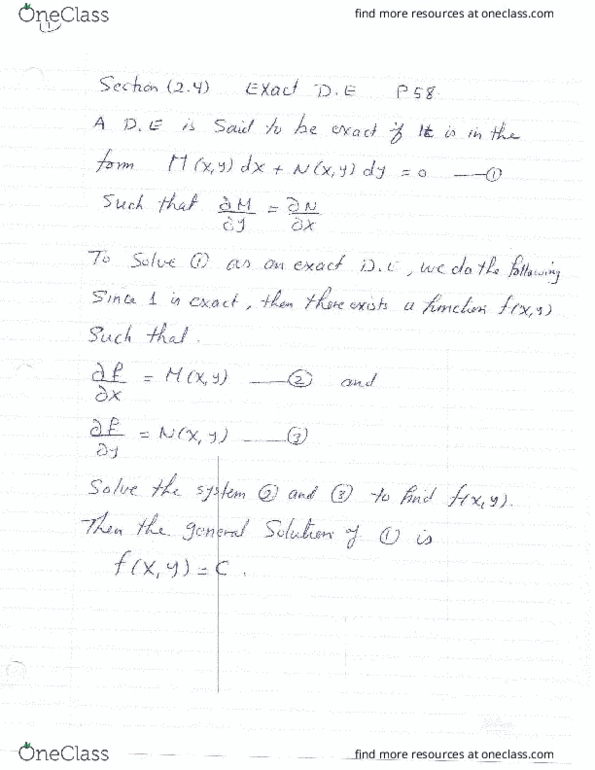 OneClass
find more resources at oneclass.com
1
Section (2.4) Exact D.E P58.
A D.E is said to be exact if it is in the
form M(x,y) dx + N(x,y) dy = 0 —①
Such that ∂M/∂y = ∂N/∂x
To Solve ① as an exact D.E, we do the following
Since 1 is exact, then there exists a function f(x,y)
Such that.
∂f/∂x = M(x,y) —② and
∂f/∂y = N(x,y) —③
Solve the system ② and ③ to find f(x,y).
Then the general Solution of ① is
f(x,y) = C.
OneClass
find more resources at oneclass.com